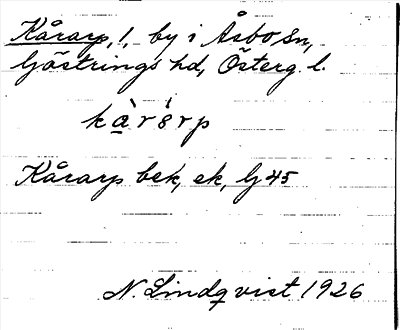 Kårarp, !, by i Åsbo sn,
Göstrings hd, Österg. l.
kàrárp
Kårarp bek, ek, Gj 45
N. Lindqvist 1926